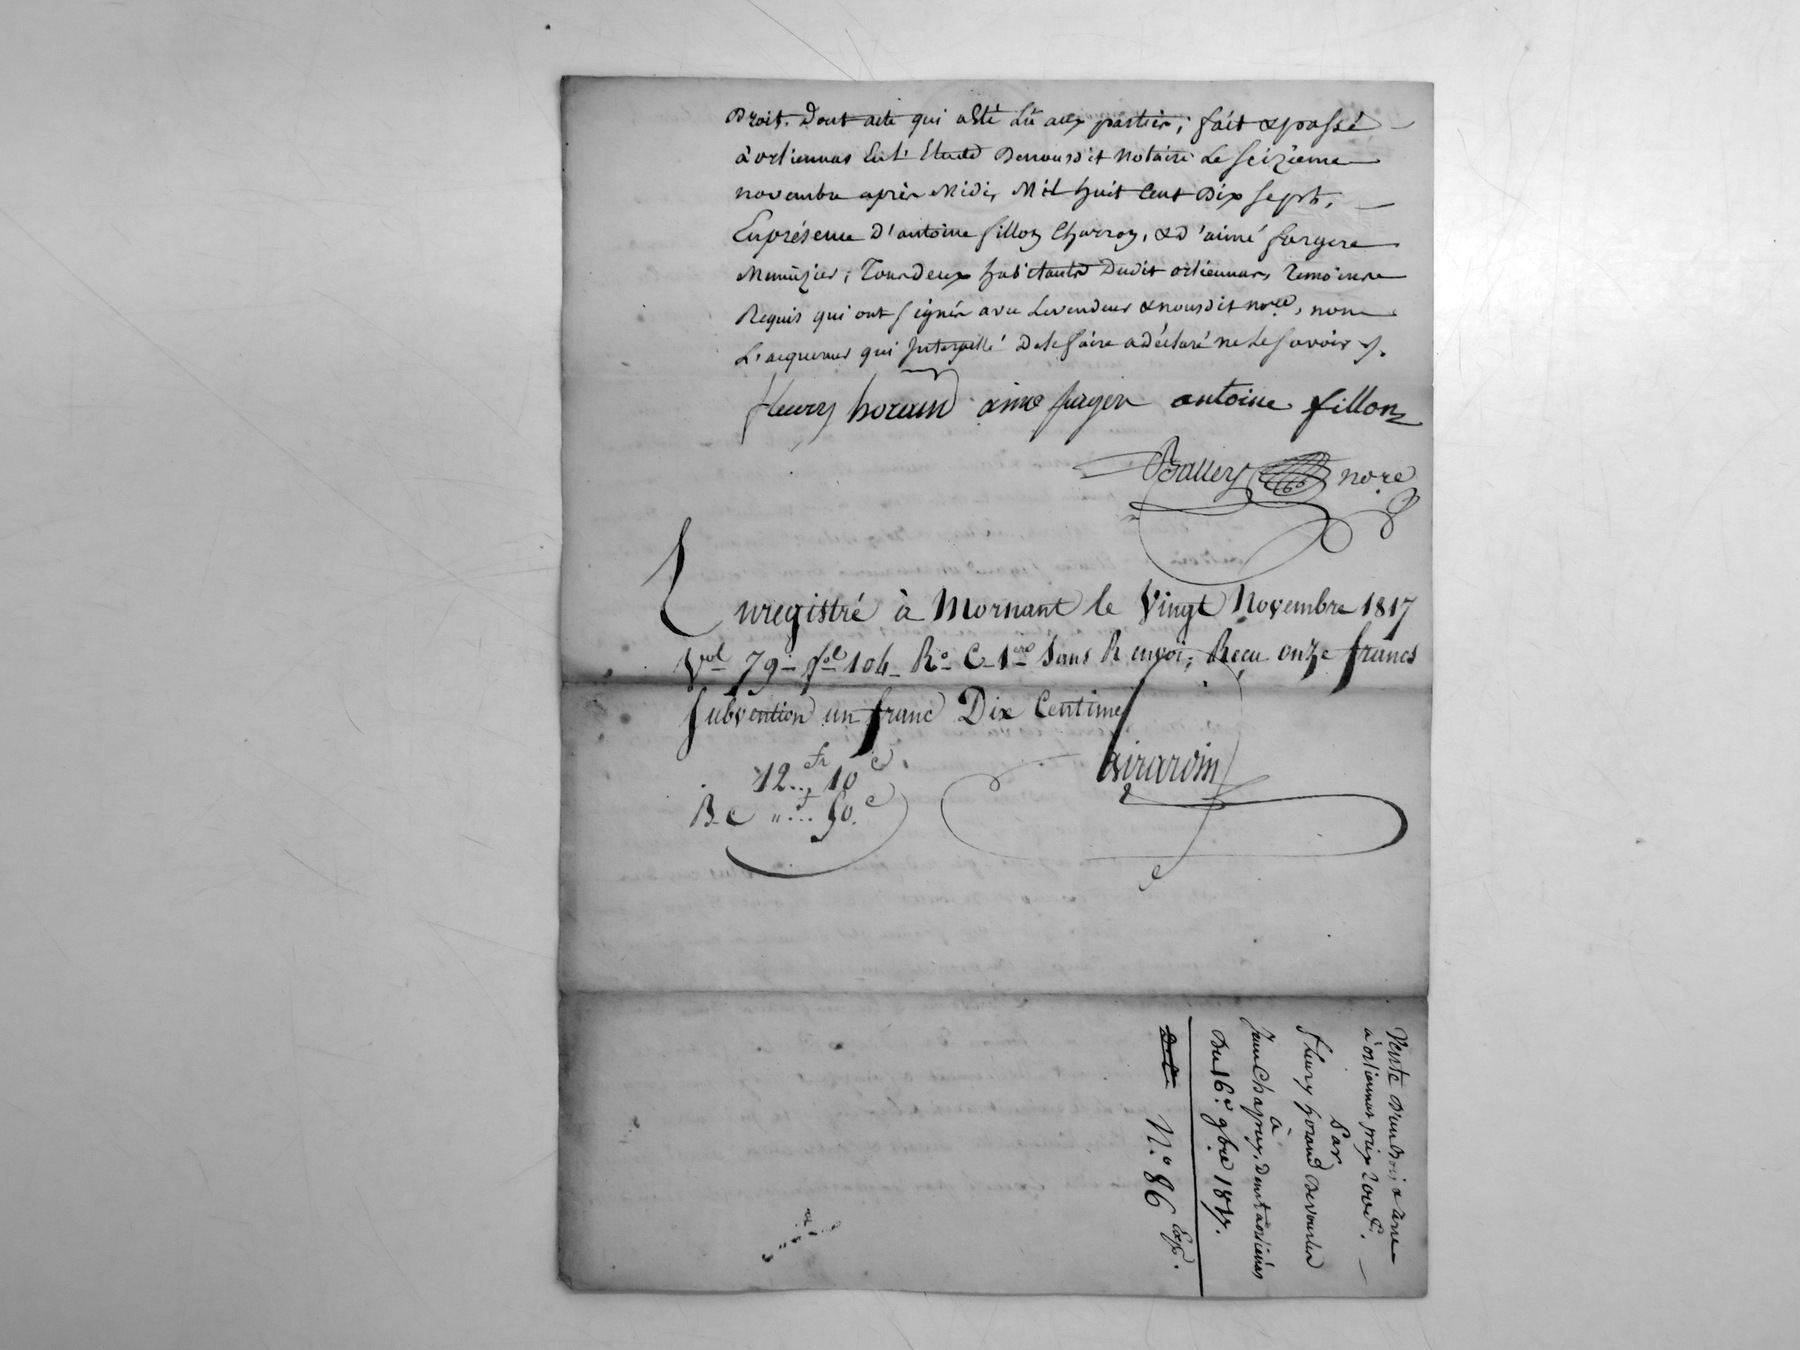 Droit. Dont acte qui a êtê Lû aux parties; fait & passé
à orliennas En L'Etude De nous dit notaire Le Seizieme
novembre après Midi, Mil huit Cent Dix Sept,
En présence D'antoine fillon Charron, & d'aimé
Menuizier; Tous deux habitants Dudit orliennas, Temoins
Requis qui ont Signés avec Le vendeur & nous dit no.re, non
L'acquereur qui Interpellé De le faire a déclaré ne Le Savoir ./.
fleury horand aimé antoine fillon
no.re
Enregistré à Mornant le Vingt Novembre 1817
Vol 79 fol 104 Ro C 1ere Sans Renvoi; Reçu onze francs
Subvention un franc Dix Centimes
Girardin
12 fr 10 c
B. C „ f 50 c
Vente D'un Bois a
à orliennas prix 200 f.
Par
fleury horand De
à
Jean Chaproy, Dem.t à orliennas
Du 16.e 9bre 1817.
N.o 86 Exp.